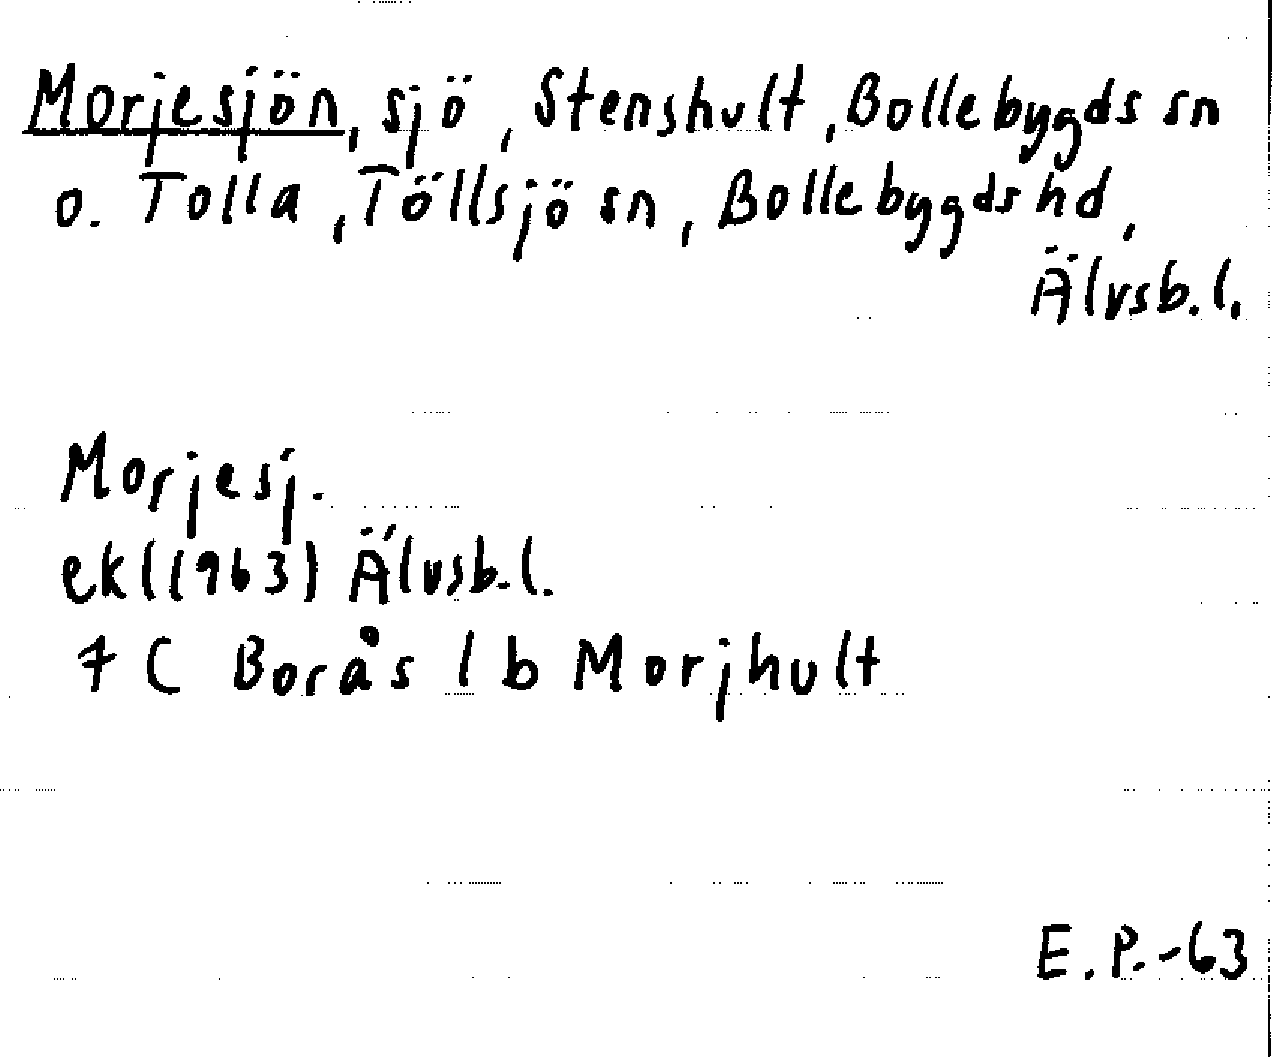 Morjesjön, sjö, Stenshult, Bollebygds sn
o. Tolla, Töllsjö sn, Bollebygds hd,
Älvsb. l.
Morjesj.
ekl (1963) Älvsb. l.
7 C Borås 1 b Morjhult
E. P. -63